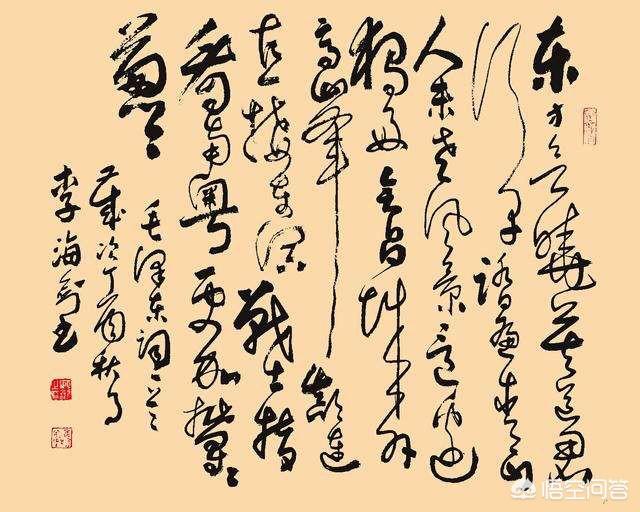 东方欲曉莫道君
行早踏遍青山
人未老风景这边
独好会昌城外
高峰颠连
直接东溟戰士指
看南粤更加郁々
葱々
毛泽东词一首
岁次丁酉秋月
李海剑书
悟空问答